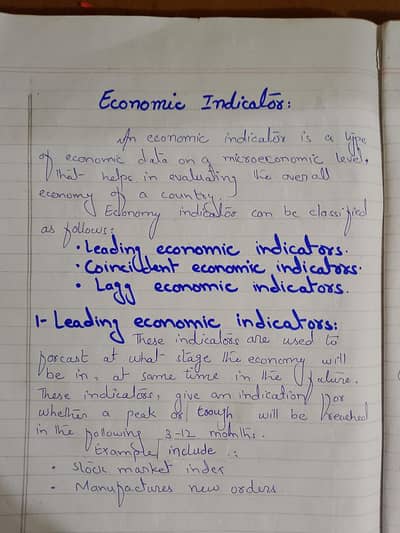 Economic Indicator:
An economic indicator is a type
of economic data on a microeconomic level,
that helps in evaluating the overall
economy of a country.
Economy indicator can be classified
as follows:
• Leading economic indicators.
• Coincident economic indicators.
• Lagg economic indicators.
1- Leading economic indicators:
These indicators are used to
forcast at what stage the economy will
be in, at same time in the future.
These indicators, give an indication for
whether a peak or trough will be reached
in the following 3-12 months.
Example include :
• Stock market index
• Manufactures new orders